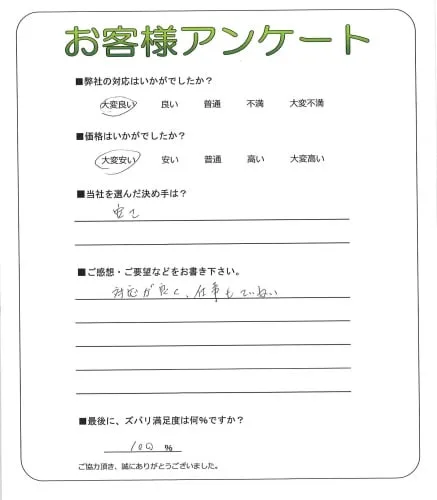 お客様アンケート
■弊社の対応はいかがでしたか？
大変良い 良い 普通 不満 大変不満
■価格はいかがでしたか？
大変安い 安い 普通 高い 大変高い
■当社を選んだ決め手は？
安さ
■ご感想・ご要望などをお書き下さい。
対応が良く、仕事もていねい
■最後に、ズバリ満足度は何%ですか？
100 %
ご協力頂き、誠にありがとうございました。